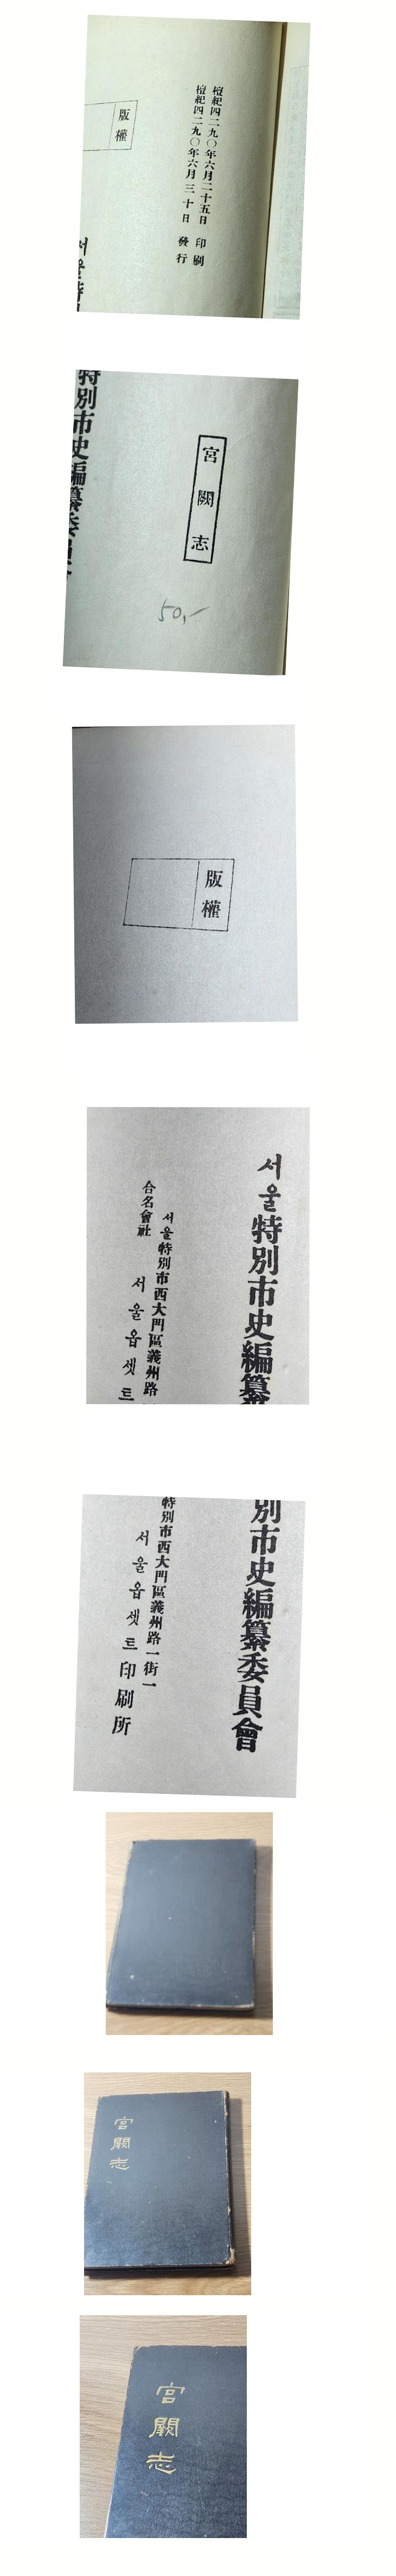 檀紀四二九〇年六月二十五日 印刷
檀紀四二九〇年六月三十日 發行
版權
서울特
特別市史編纂委員會
宮闕志
50,-
版權
서울特別市史編纂
서울特別市西大門區義州路
合名會社 서울옵셋트
別市史編纂委員會
特別市西大門區義州路一街一
서울옵셋트印刷所
宮闕志
宮闕志